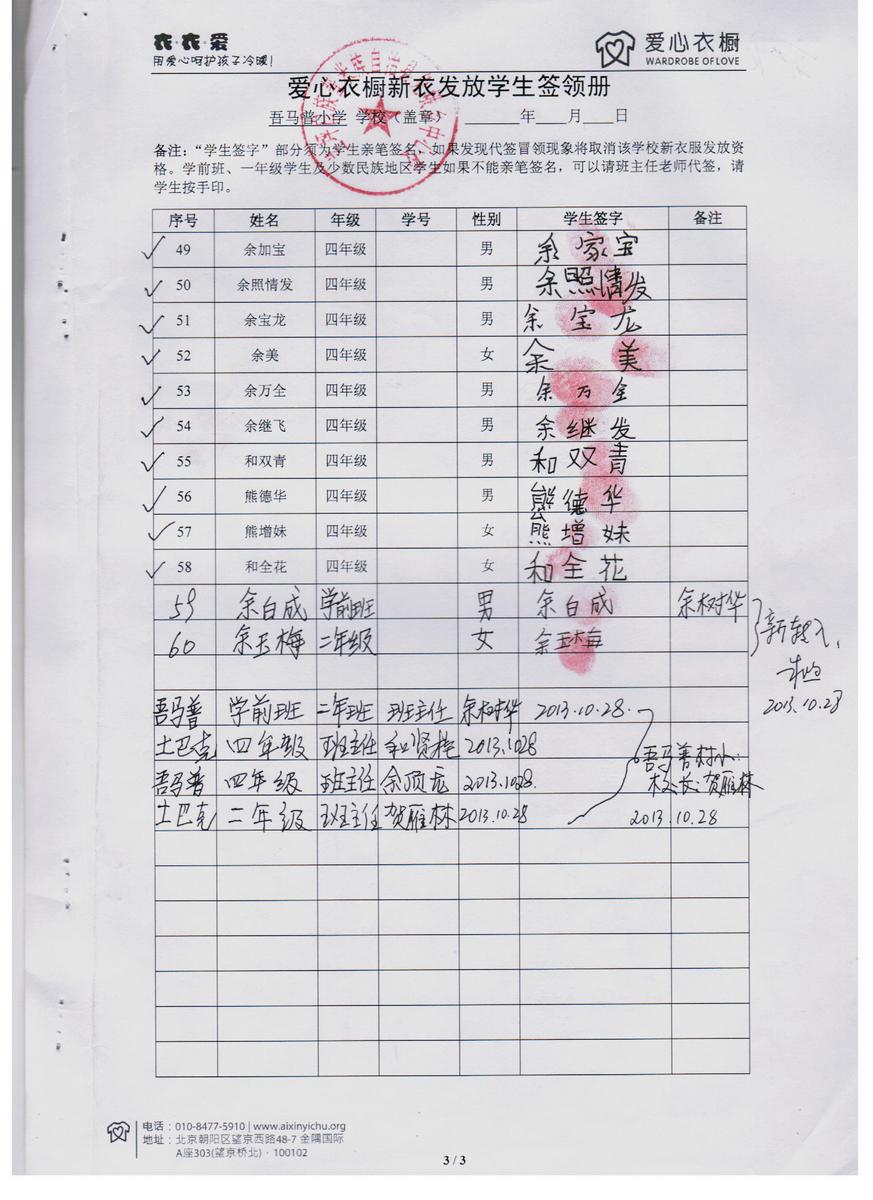 衣·衣·爱
用爱心呵护孩子冷暖！
爱心衣橱
WARDROBE OF LOVE
爱心衣橱新衣发放学生签领册
吾马普小学 学校（盖章） ____年____月____日
备注：“学生签字”部分须为学生亲笔签名，如果发现代签冒领现象将取消该学校新衣服发放资
格。学前班、一年级学生及少数民族地区学生如果不能亲笔签名，可以请班主任老师代签，请
学生按手印。
序号 姓名 年级 学号 性别 学生签字 备注
49 余加宝 四年级 男 余家宝
50 余照情发 四年级 男 余照情发
51 余宝龙 四年级 男 余宝龙
52 余美 四年级 女 余美
53 余万全 四年级 男 余万全
54 余继飞 四年级 男 余继发
55 和双青 四年级 男 和双青
56 熊德华 四年级 男 熊德华
57 熊增妹 四年级 女 熊增妹
58 和全花 四年级 女 和全花
59 余白成 学前班 男 余白成 余树华
60 余玉梅 二年级 女 余玉梅
新转入，
2013.10.28
吾马普 学前班 二年班 班主任 余树华 2013.10.28.
土巴克 四年级 班主任 和贤 2013.1028
吾马普 四年级 班主任 余顶龙 2013.1028.
土巴克 二年级 班主任 贺雁林 2013.10.28
吾马普村小：
校长：贺雁林
2013.10.28
电话：010-8477-5910 | www.aixinyichu.org
地址：北京朝阳区望京西路48-7 金隅国际
A座303(望京桥北)·100102
3 / 3